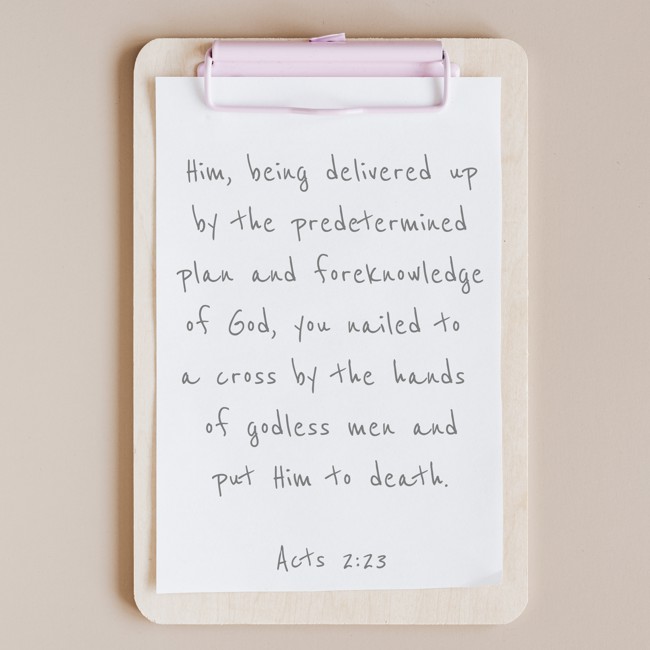 Him, being delivered up
by the predetermined
plan and foreknowledge
of God, you nailed to
a cross by the hands
of godless men and
put Him to death.
Acts 2:23